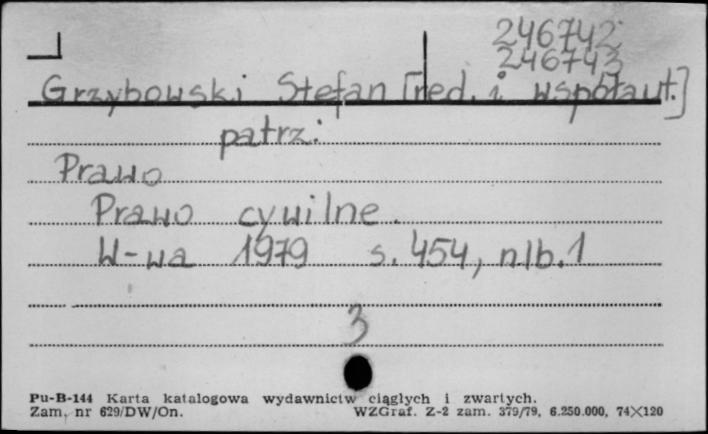 246742
246743
Grzybowski Stefan [red. i współaut.]
patrz:
Prawo
Prawo cywilne.
W-wa 1979 s. 454, nlb. 1
3
Pu-B-144 Karta katalogowa wydawnictw ciągłych i zwartych.
Zam. nr 629/DW/On. WZGraf. Z-2 zam. 379/79, 6.250.000, 74X120